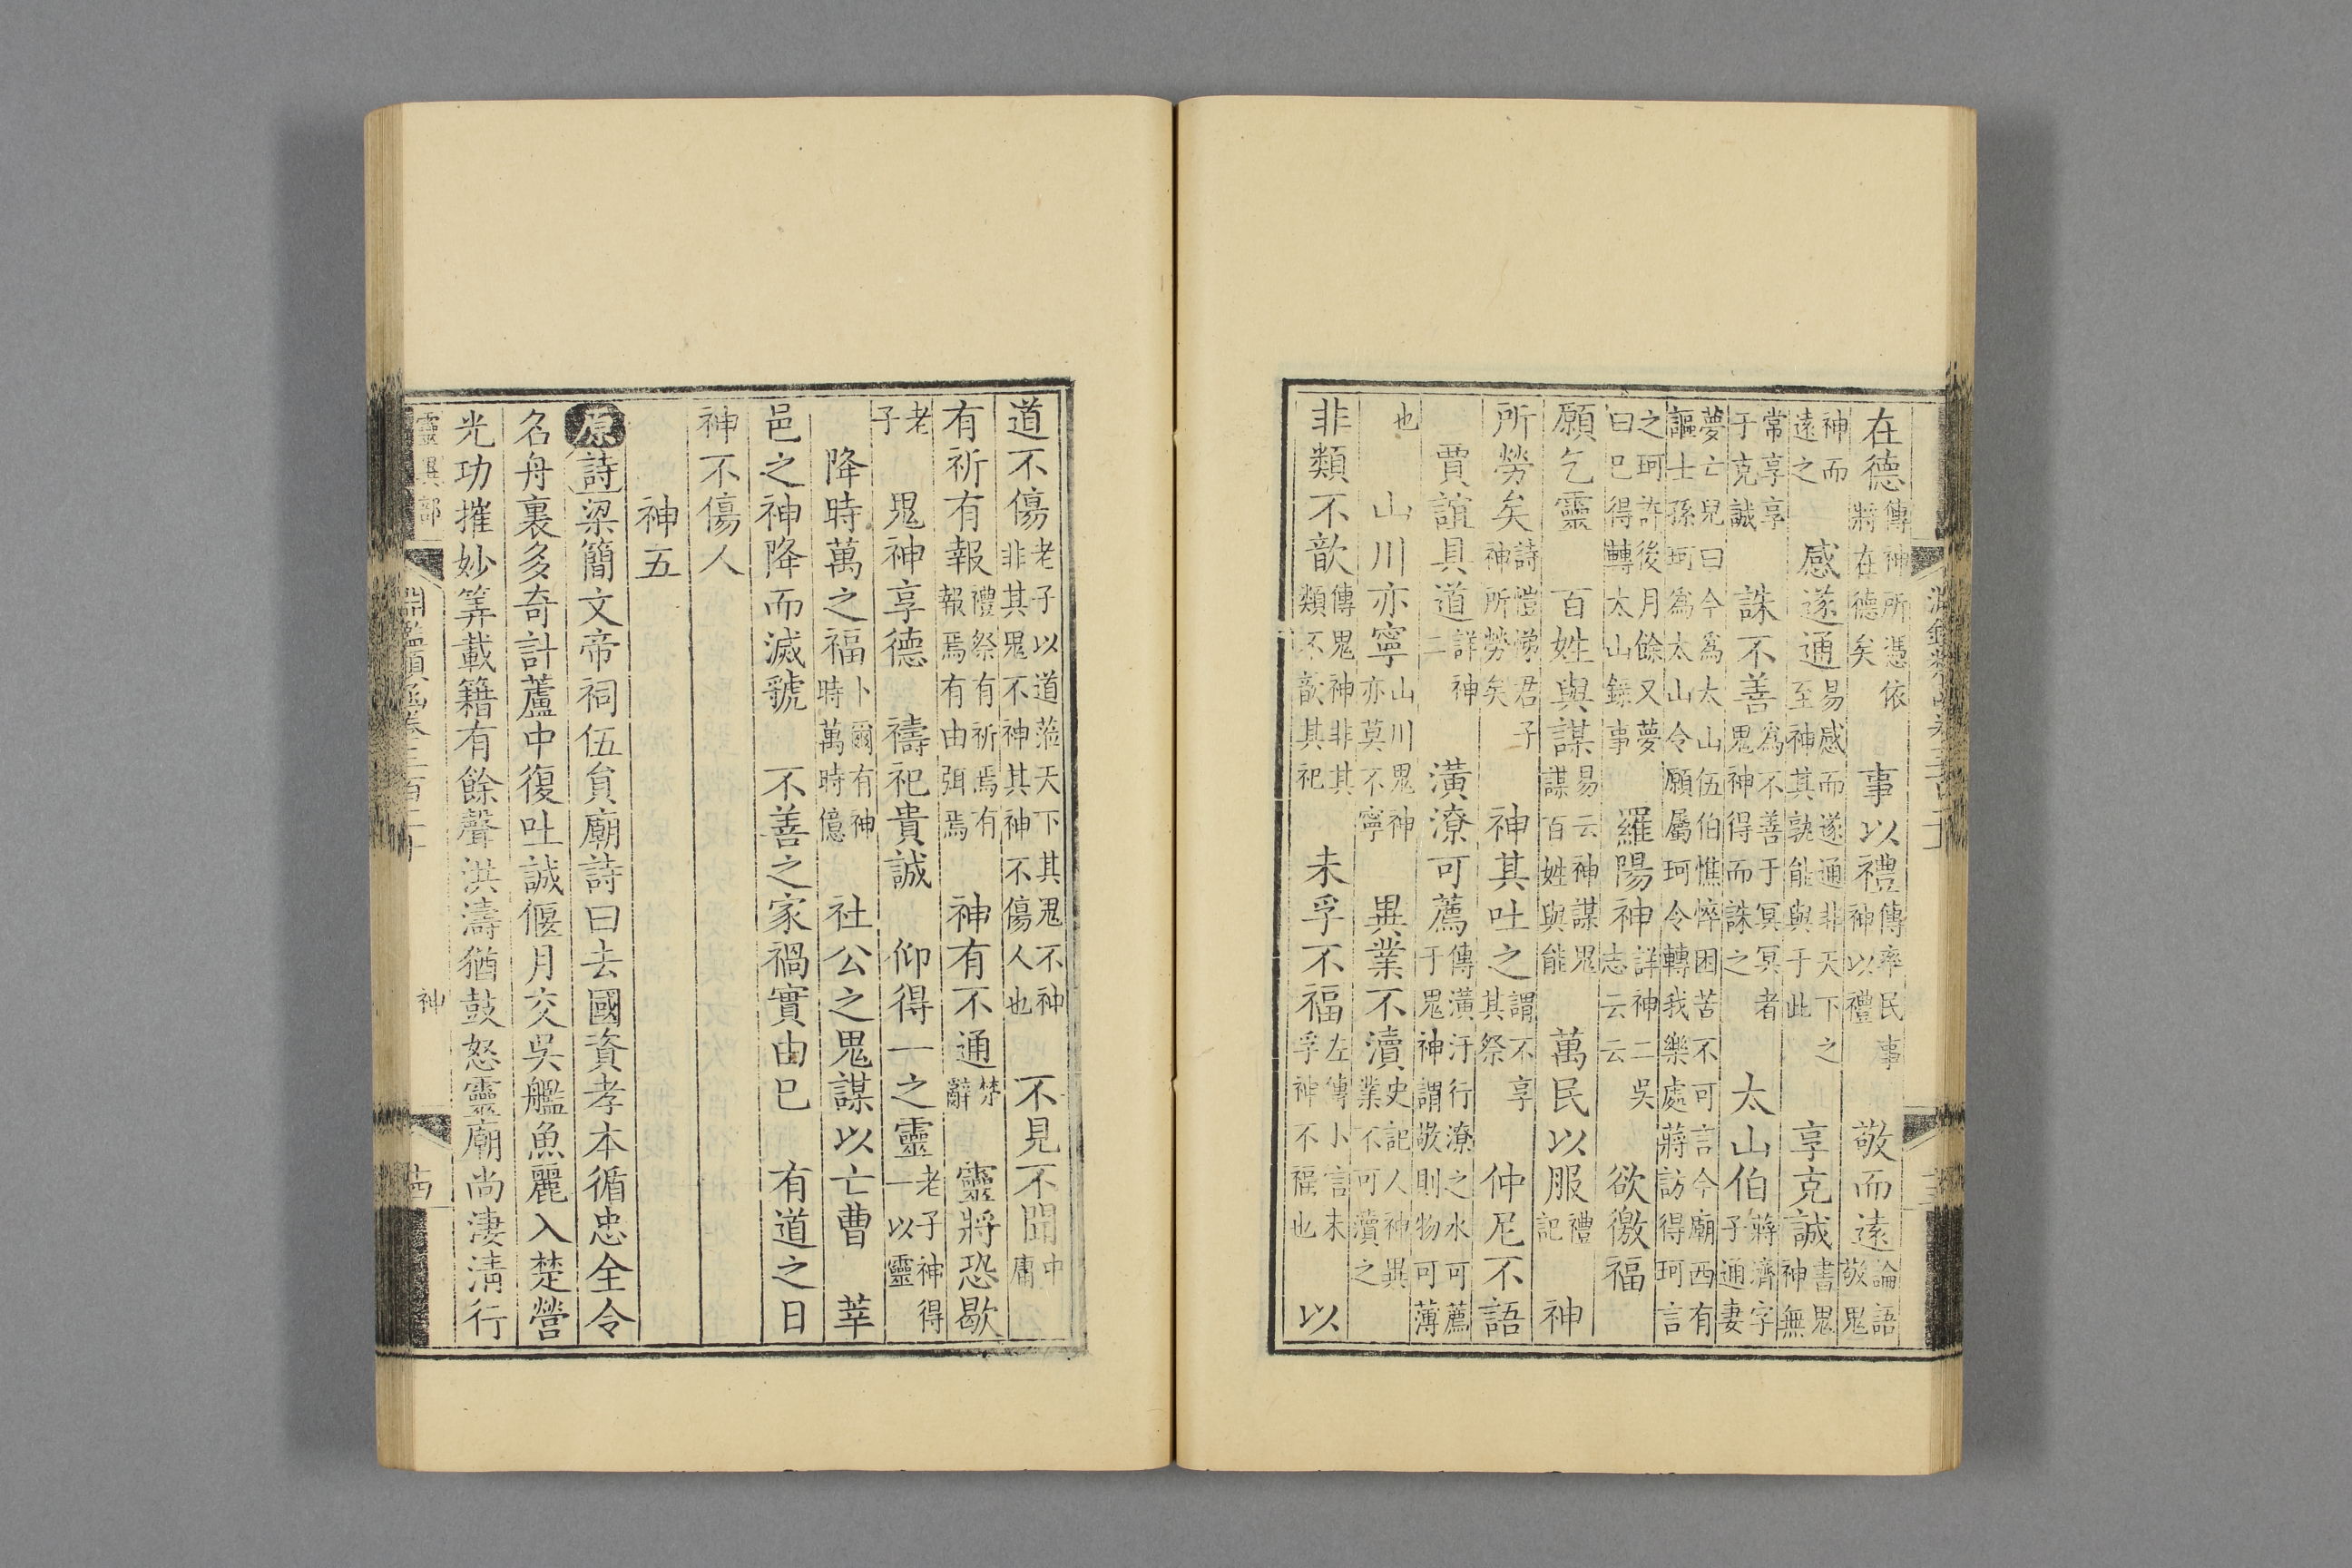 在德傳神所憑依將在德矣　事以禮傳率民事神以禮　敬而遠論語敬鬼
神而遠之　感遂通易感而遂通非天下之至神其孰能與于此　享克誠書鬼神無
常享享于克誠　誅不善爲不善于冥冥者鬼神得而誅之　太山伯蔣濟字子通妻
夢亡兒曰今爲太山伍伯憔悴困苦不可言今廟西有謳士孫珂爲太山令願屬珂令轉我樂處蔣訪得珂言
之珂許後月餘又夢曰已得轉太山錄事　羅陽神詳神二吳志云云　欲徼福
願乞靈　百姓與謀易云神謀鬼謀百姓與能　萬民以服禮記　神
所勞矣詩愷悌君子神所勞矣　神其吐之謂不享其祭　仲尼不語
賈誼具道詳神二　潢潦可薦傳潢汙行潦之水可薦于鬼神謂敬則物可薄
也　山川亦寧山川鬼神亦莫不寧　異業不瀆史記人神異業不可瀆之
非類不歆傳鬼神非其類不歆其祀　未孚不福左傳小言未孚神不福也　以
道不傷老子以道蒞天下其鬼不神非其鬼不神其神不傷人也　不見不聞中庸
有祈有報禮祭有祈焉有報焉有由弭焉　神有不通楚辭　靈將恐歇
老子　鬼神享德　禱祀貴誠　仰得一之靈老子神得一以靈
降時萬之福卜爾有神時萬時億　社公之鬼謀以亡曹　莘
邑之神降而滅虢　不善之家禍實由已　有道之日
神不傷人
神五
原詩梁簡文帝祠伍員廟詩曰去國資孝本循忠全令
名舟裏多奇計蘆中復吐誠偃月交吳艦魚麗入楚營
光功摧妙筭載籍有餘聲洪濤猶鼓怒靈廟尚淒淸行
靈異部　淵鑑類函卷三百二十　神